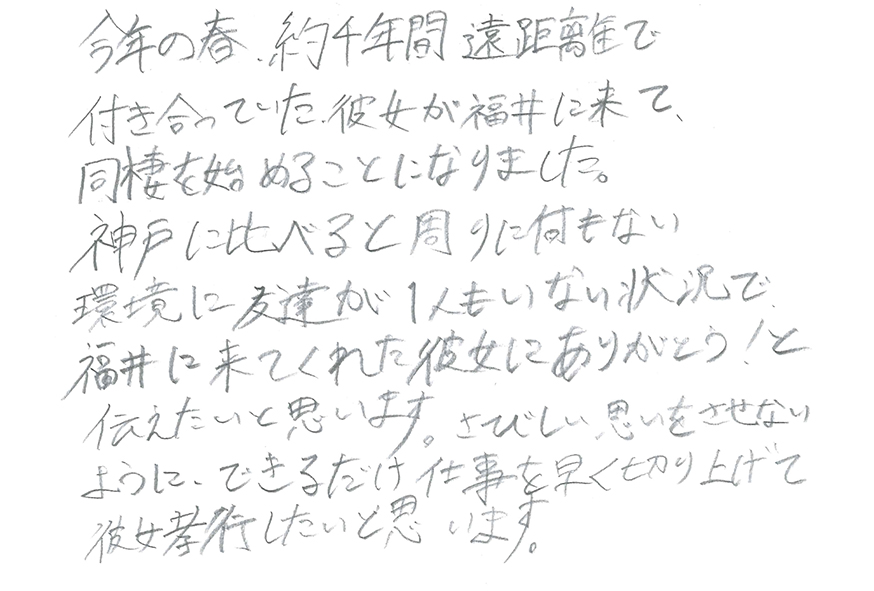 今年の春、約千年間遠距離で
付き合っていた彼女が福井に来て、
同棲を始めることになりました。
神戸に比べると周りに何もない
環境に友達が1人もいない状況で
福井に来てくれた彼女にありがとう！と
伝えたいと思います。さびしい思いをさせない
ように、できるだけ仕事を早く切り上げて
彼女孝行したいと思います。